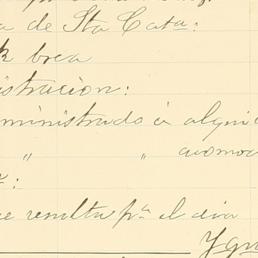 a de Sta Cata:
k brea
istracion:
ministrado á alqui
" " acomod
:
e resulta pa. el dia
Ygn